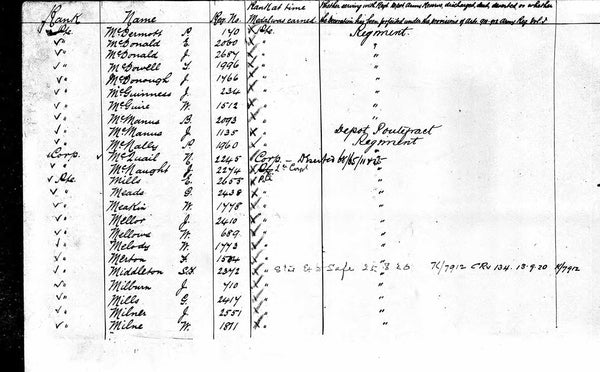 Rank Name Reg. No. Rank at time Medal was earned Whether serving with Regt. Depot Army Reserve, discharged, dead, deserted, or whether the decoration has been forfeited under the provisions of Arts.
Pte. McDermott P. 140 Pte. Regiment.
" McDonald E. 2060 " "
" McDonald J. 2687 " "
" McDowell T. 1996 " "
" McDonough J. 1466 " "
" McGuinness J. 234 " "
" McGuire W. 1512 " "
" McManus B. 2093 " "
" McManus J. 1135 " Depot Pontefract
" McNally P. 1960 " Regiment
Corp. McQuail N. 2245 Corp. – Deserted
" McNaught J. 2274 Pte. L. Corpl "
Pte. Mills E. 2655 Pte. "
" Meads G. 2438 " "
" Meakin W. 1778 " "
" Mellor J. 2410 " "
" Mellows W. 689 " "
" Melody W. 1773 " "
" Merton F. "
" Middleton 2372 " Safe 76/7912 CRV 134. 18.9.20 7912
" Milburn J. 710 " "
" Mills G. 2417 " "
" Milner J. 2551 " "
" Milne W. 1871 " "